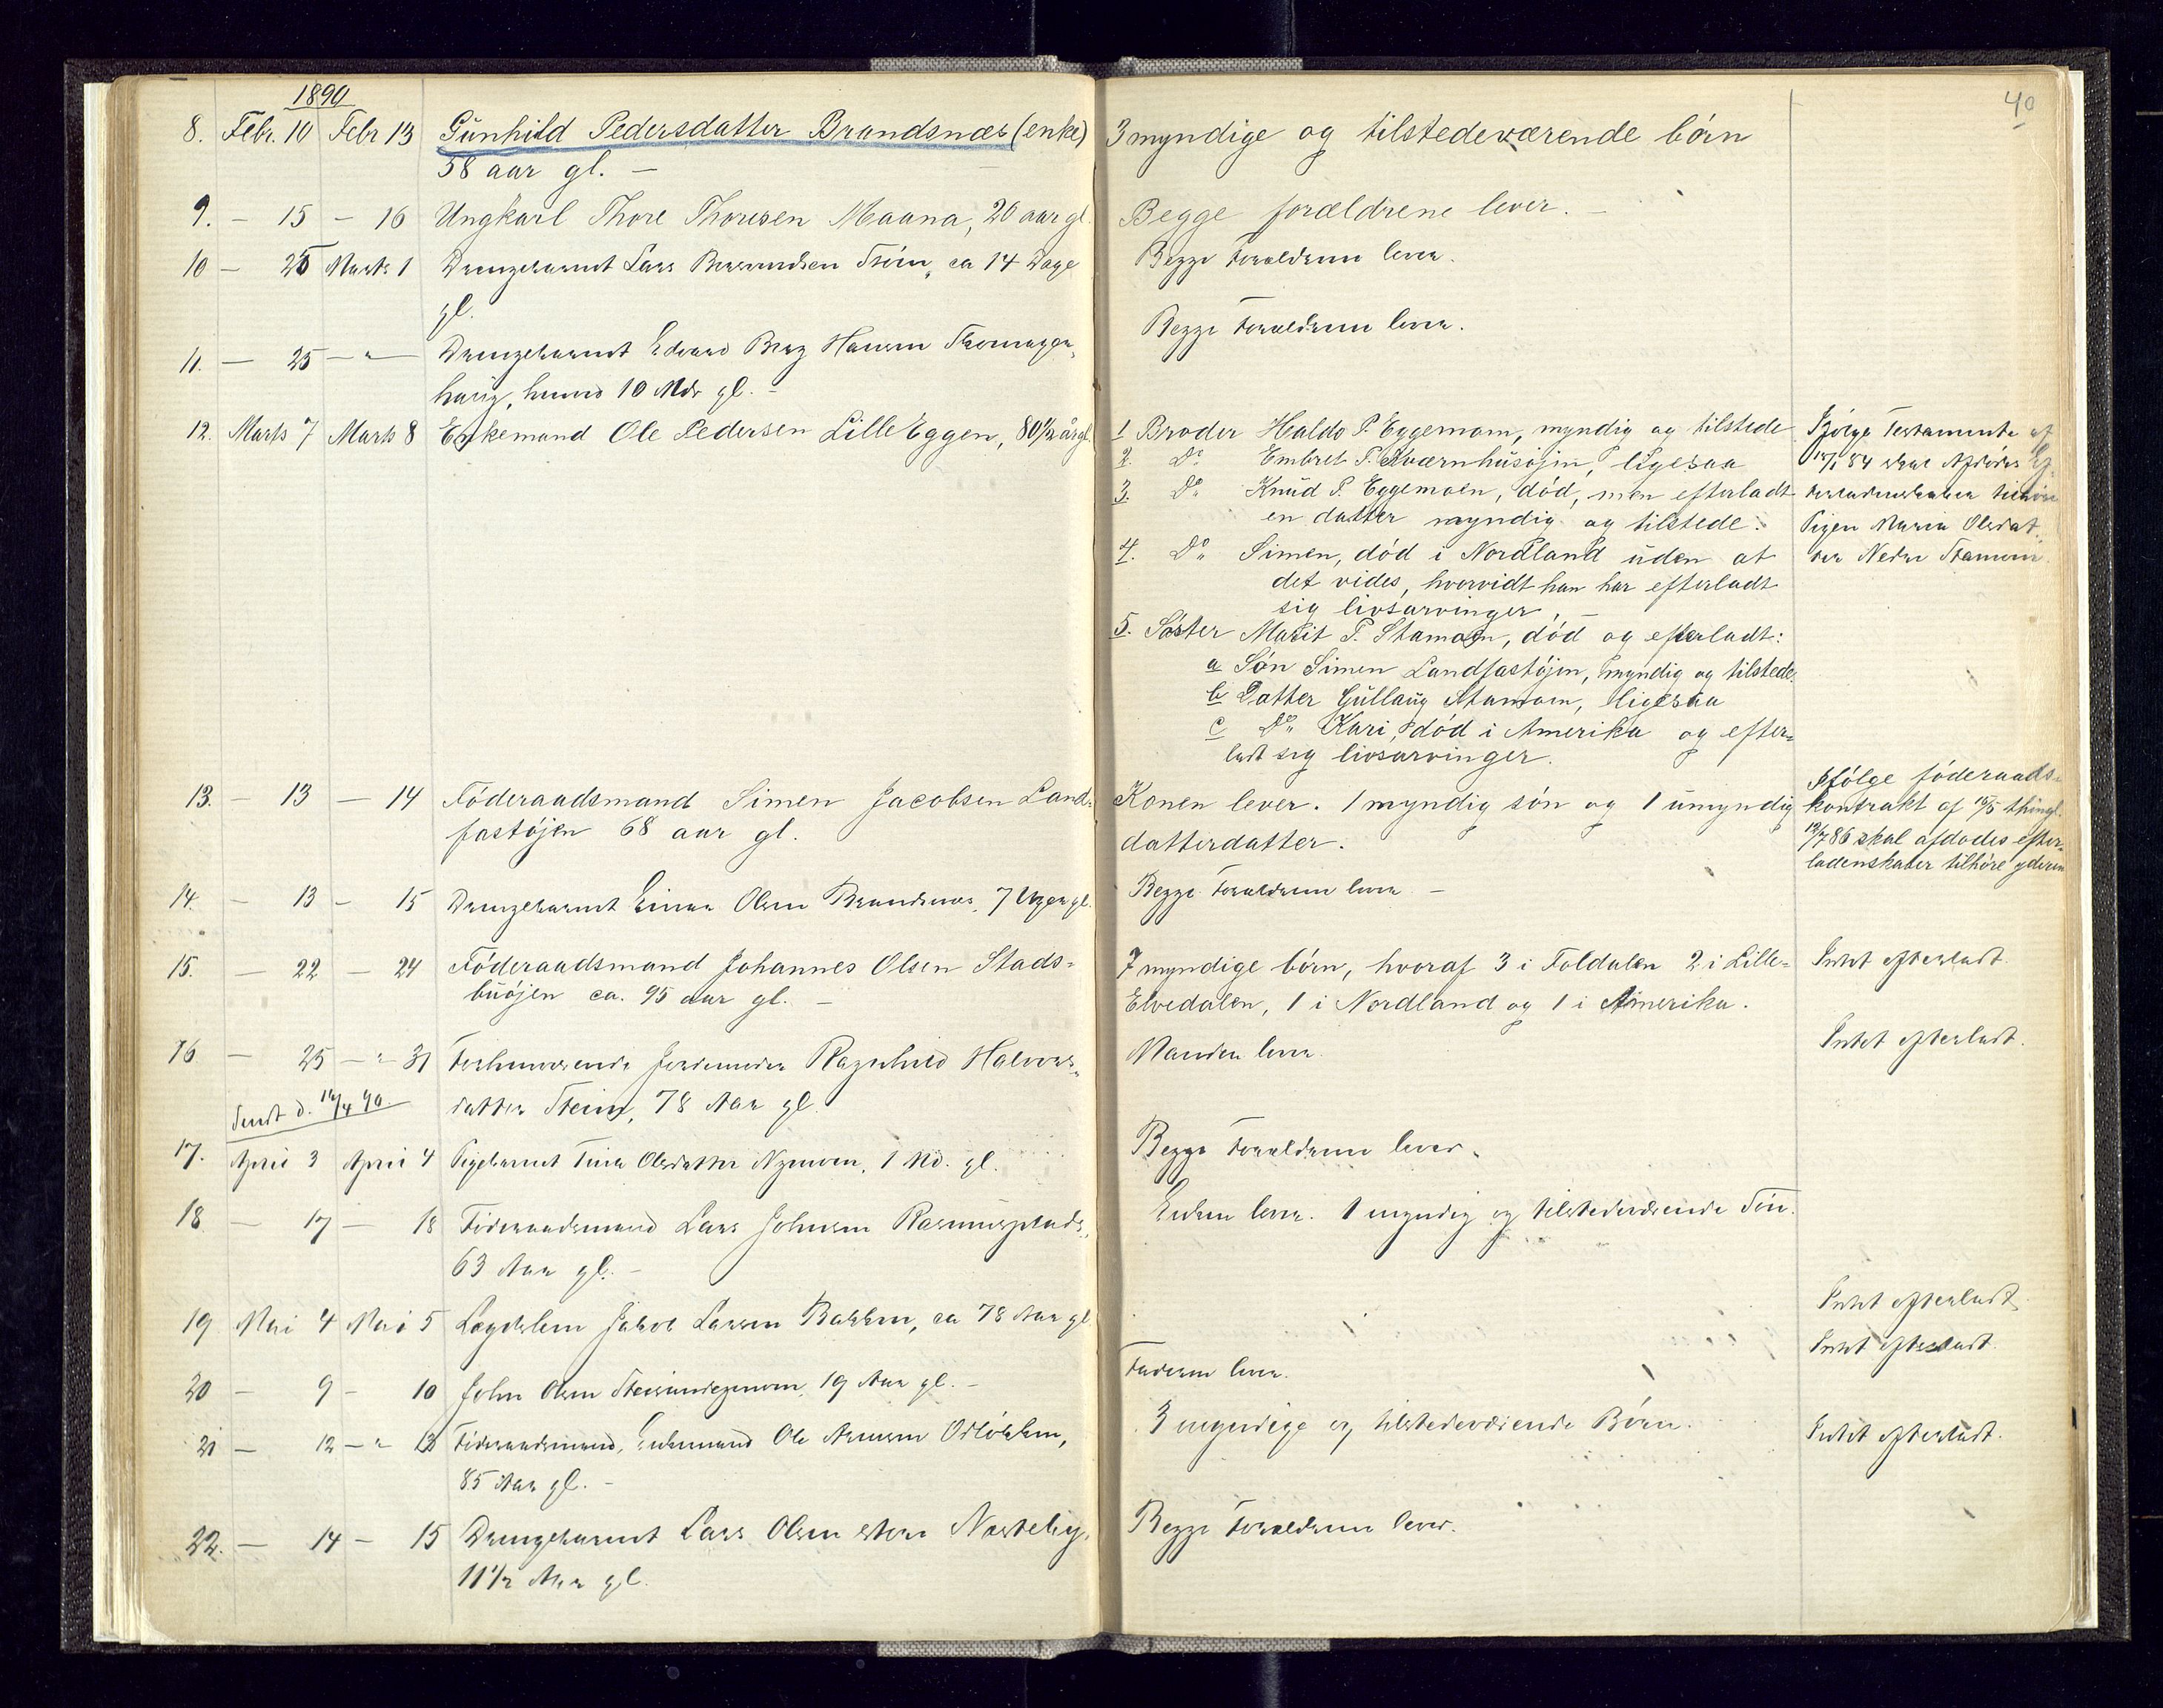 40
1890
8. Febr. 10 Febr 13 Gunhild Pedersdatter Brandsnæs (enke) 3 myndige og tilstedeværende børn
58 aar gl. —
9. — 15 — 16 Ungkarl Thore Thoresen Maana, 20 aar gl. Begge forældrene lever. —
10 — 25 Marts 1 Drengebarnet Lars ca 14 Dage Begge Forældrene lever.
gl.
11. — 25 — " — Drengebarnet Edvard Berg Hansen Begge Forældrene lever.
10 Mdr gl. —
12. Marts 7 Marts 8 Enkemand Ole Pedersen LilleEggen, 80½ år gl. 1 Broder Haldo P. Eggemoen, myndig og tilstede Ifølge Testamente af
2. Do Embret P. Kværnhusøjen, ligesaa 84 skal Afdødes Ef-
3. Do Knud P. Eggemoen, død, men efterladt terladenskaber tilhøre
en datter myndig og tilstede. Pigen Maria Olsdat-
4. Do Simen, død i Nordland uden at ter Nedre Stamoen.
det vides, hvorvidt han har efterladt
sig livsarvinger. —
5. Søster Marit P. Stamoen, død og efterladt:
a Søn Simen Landfastøjen, myndig og tilstede.
b Datter Gullaug Stamoen, ligesaa
c Do Kari, død i Amerika og efter-
ladt sig livsarvinger.
13. — 13 — 14 Føderaadsmand Simen Jacobsen Land- Konen lever. 1 myndig søn og 1 umyndig Ifølge føderaads-
fastøjen 68 aar gl. datterdatter. kontrakt af 15/5 thingl.
12/7 86 skal afdødes efter-
ladenskaber tilhøre yderen
14. — 13 — 15 Drengebarnet Einar Olsen Brandsnes, 7 Uger gl. Begge Forældrene lever —
15. — 22 — 24 Føderaadsmand Johannes Olsen Stads- 7 myndige børn, hvoraf 3 i Foldalen 2 i Lille- Intet efterladt.
buøjen ca. 95 aar gl. — Elvedalen, 1 i Nordland og 1 i Amerika.
16 — 25 — " 31 Forhenværende Jordemoder Ragnhild Halvors- Manden lever. Intet efterladt.
datter Steien, 78 Aar gl.
Sendt d. 16/4 90
17. April 3 April 4 Pigebarnet Tina Olsdatter Nymoen, 1 Md. gl. Begge Forældrene lever.
18 — 17 — 18 Føderaadsmand Lars Johnsen Rasmusplads, Enken lever. 1 myndig og tilstedeværende Søn.
63 Aar gl. —
19 Mai 4 Mai 5 Lægdslem Jakob Larsen Bakken, ca 78 Aar gl. Intet efterladt.
20 — 9 — 10 John Olsen 19 Aar gl. — Faderen lever. Intet efterladt.
21 — 12 — " 13 Føderaadsmand, Enkemand Ole Arnesen Odløkken, 3 myndige og tilstedeværende Børn. Intet efterladt.
85 Aar gl. —
22. — 14 — 15 Drengebarnet Lars Olsen store Nesteby, Begge Forældrene lever.
11½ Aar gl.